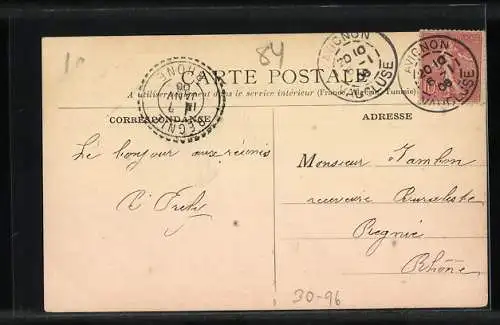 10
84
AVIGNON
VAUCLUSE
AVIGNON
VAUCLUSE
REGNIÉ
RHONE
CARTE POSTALE
A utiliser seulement dans le service intérieur (France, Algérie, Tunisie)
CORRESPONDANCE
ADRESSE
Le bonjour aux réunis
Monsieur Jambon
receveur Buraliste
Regnié
Rhône
30-96